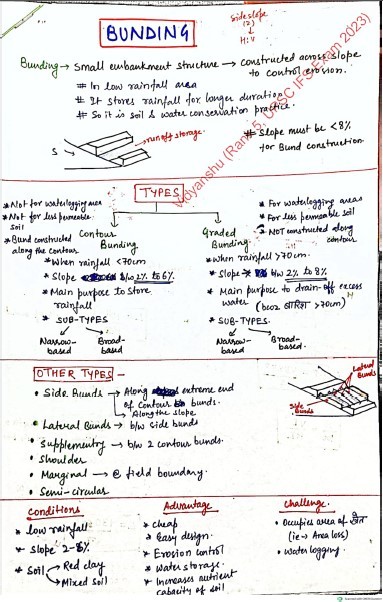 BUNDING
Side slope
(z)
↓
H:V
Bunding → Small embankment structure → constructed across slope
to control erosion.
# In low rainfall area
# It stores rainfall for longer duration
# So it is soil & water conservation practice.
→ runoff storage.
S →
# Slope must be <8%
for Bund construction
Vidyanshu (Rank 5, UPSC IFS Exam 2023)
TYPES
* Not for waterlogging area
* Not for less permeable
soil
* Bund constructed
along the contour
Contour
Bunding
* When rainfall <70cm
* Slope b/w 2% to 6%
* Main purpose to store
rainfall
* SUB-TYPES
Narrow-
based
Broad-
based
* For waterlogging areas
* For less permeable soil
* NOT constructed along
contour
Graded
Bunding
* When rainfall >70cm.
* Slope b/w 2% to 8%
* Main purpose to drain-off excess
water (बारिश >70cm)
* SUB-TYPES
Narrow-
based
Broad-
based
OTHER TYPES –
• Side Bunds → Along extreme end
of contour bunds.
→ Along the slope
• Lateral Bunds → b/w side bunds
• Supplementry → b/w 2 contour bunds.
• Shoulder
• Marginal → @ field boundary.
• Semi-circular
Lateral
Bunds
Side
Bunds
Conditions
* low rainfall
* Slope 2-8%
* Soil → Red clay
→ Mixed soil
Advantage
* Cheap
* Easy design.
* Erosion control
* Water storage.
* Increases nutrient
capacity of soil
Challenge.
• Occupies area of खेत
(ie → Area loss)
• Water logging.